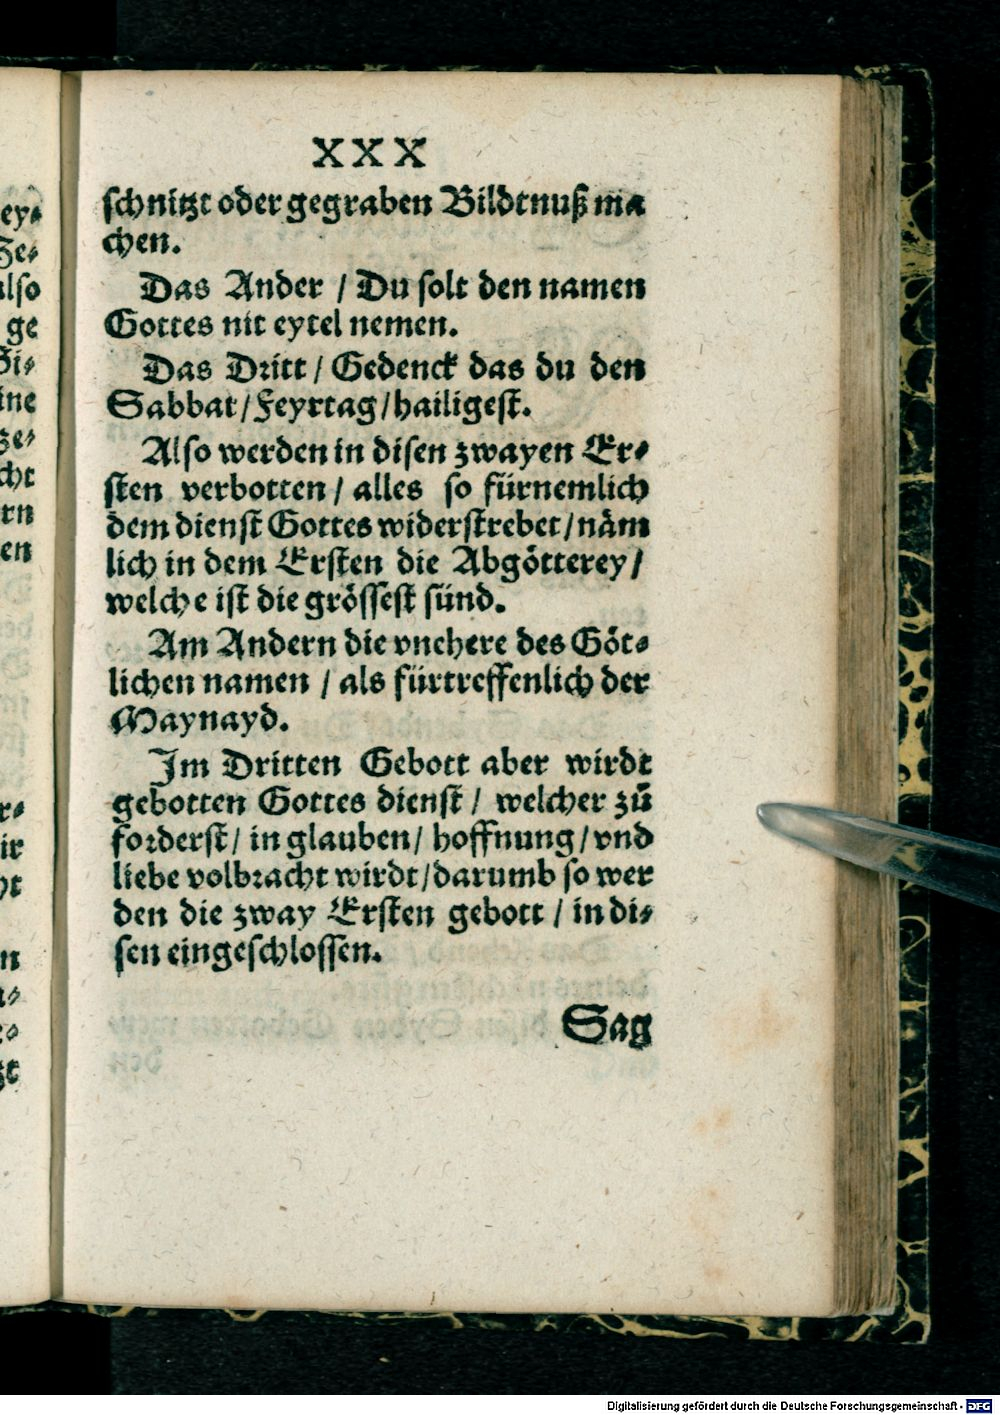 XXX
schnitzt oder gegraben Bildtnuß ma
chen.
Das Ander / Du solt den namen
Gottes nit eytel nemen.
Das Dritt / Gedenck das du den
Sabbat / Feyrtag / hailigest.
Also werden in disen zwayen Er⸗
sten verbotten / alles so fürnemlich
dem dienst Gottes widerstrebet / näm
lich in dem Ersten die Abgötterey /
welche ist die grössest sünd.
Am Andern die vnehere des Göt⸗
lichen namen / als fürtreffenlich der
Maynayd.
Im Dritten Gebott aber wirdt
gebotten Gottes dienst / welcher zů
forderst / in glauben / hoffnung / vnd
liebe volbracht wirdt / darumb so wer
den die zway Ersten gebott / in di⸗
sen eingeschlossen.
Sag
Digitalisierung gefördert durch die Deutsche Forschungsgemeinschaft - DFG